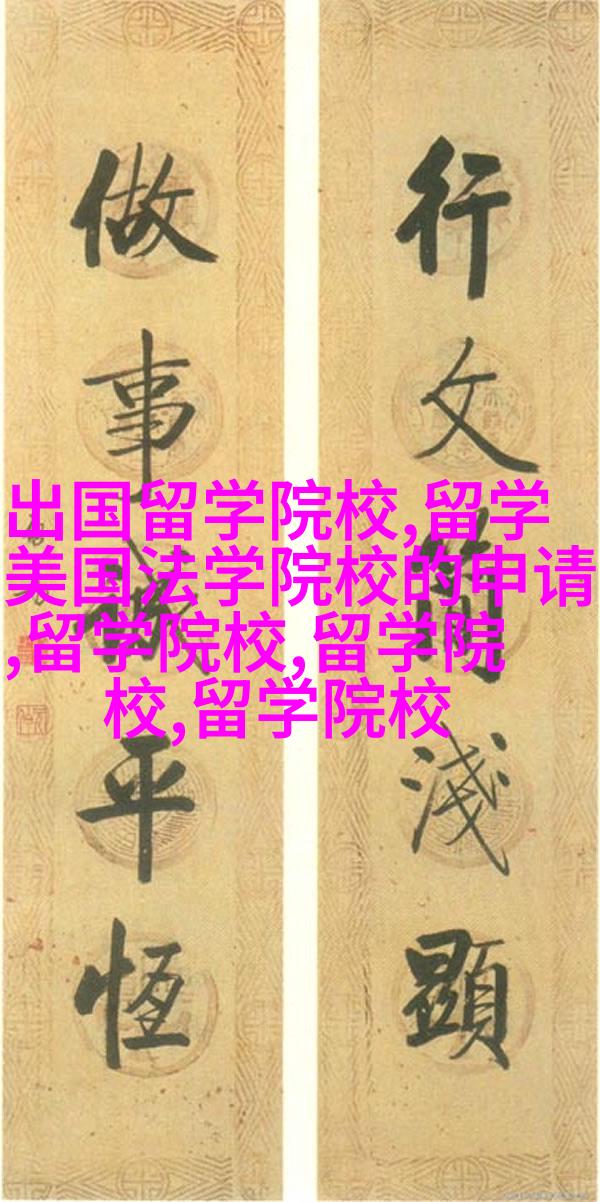 行文簡淺顯
做事誠平恆
出国留学院校,留学
美国法学院校的申请
,留学院校,留学院
校,留学院校